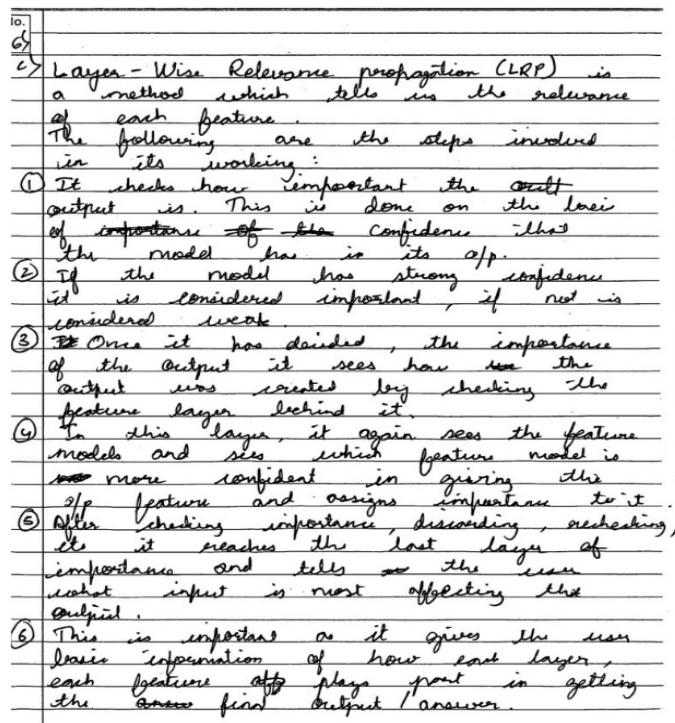 No.
6)
c) Layer - Wise Relevance propagation (LRP) is
a method which tells us the relevance
of each feature.
The following are the steps involved
in its working :
① It checks how important the
output is. This is done on the basis
of importance of the Confidence that
the model has in its o/p.
② If the model has strong confidence
it is considered important, if not is
considered weak.
③ It Once it has decided, the importance
of the output it sees how the
output was created by checking the
feature layer behind it.
④ In this layer, it again sees the feature
models and sees which feature model is
more confident in giving the
o/p feature and assigns importance to it.
⑤ After checking importance, discarding, rechecking,
etc it reaches the last layer of
importance and tells the user
what input is most affecting the
output.
⑥ This is important as it gives the user
basic information of how each layer,
each feature plays part in getting
the output / answer.